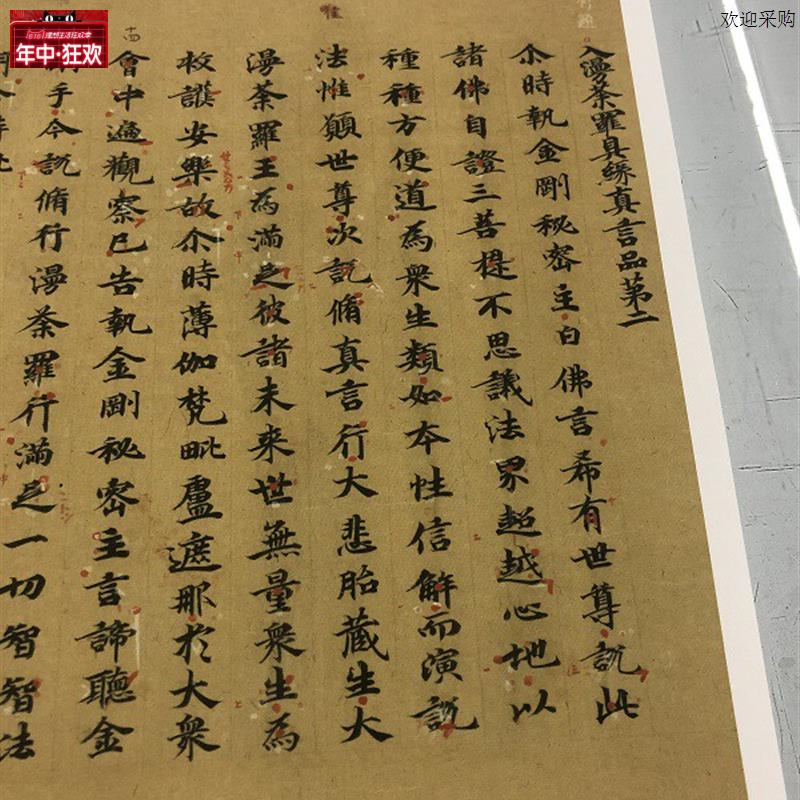 618理想生活狂欢季
年中·狂欢
欢迎采购
入漫荼羅具緣真言品第二
尒時執金剛秘密主白佛言希有世尊說此
諸佛自證三菩提不思議法界超越心地以
種種方便道為衆生類如本性信解而演說
唯
法惟願世尊次說脩真言行大悲胎藏生大
漫荼羅王為滿足彼諸未来世無量衆生為
救護安樂故尒時薄伽梵毗盧遮那於大衆
會中遍觀察已告執金剛秘密主言諦聽金
手今說脩行漫荼羅行滿足一切智智法